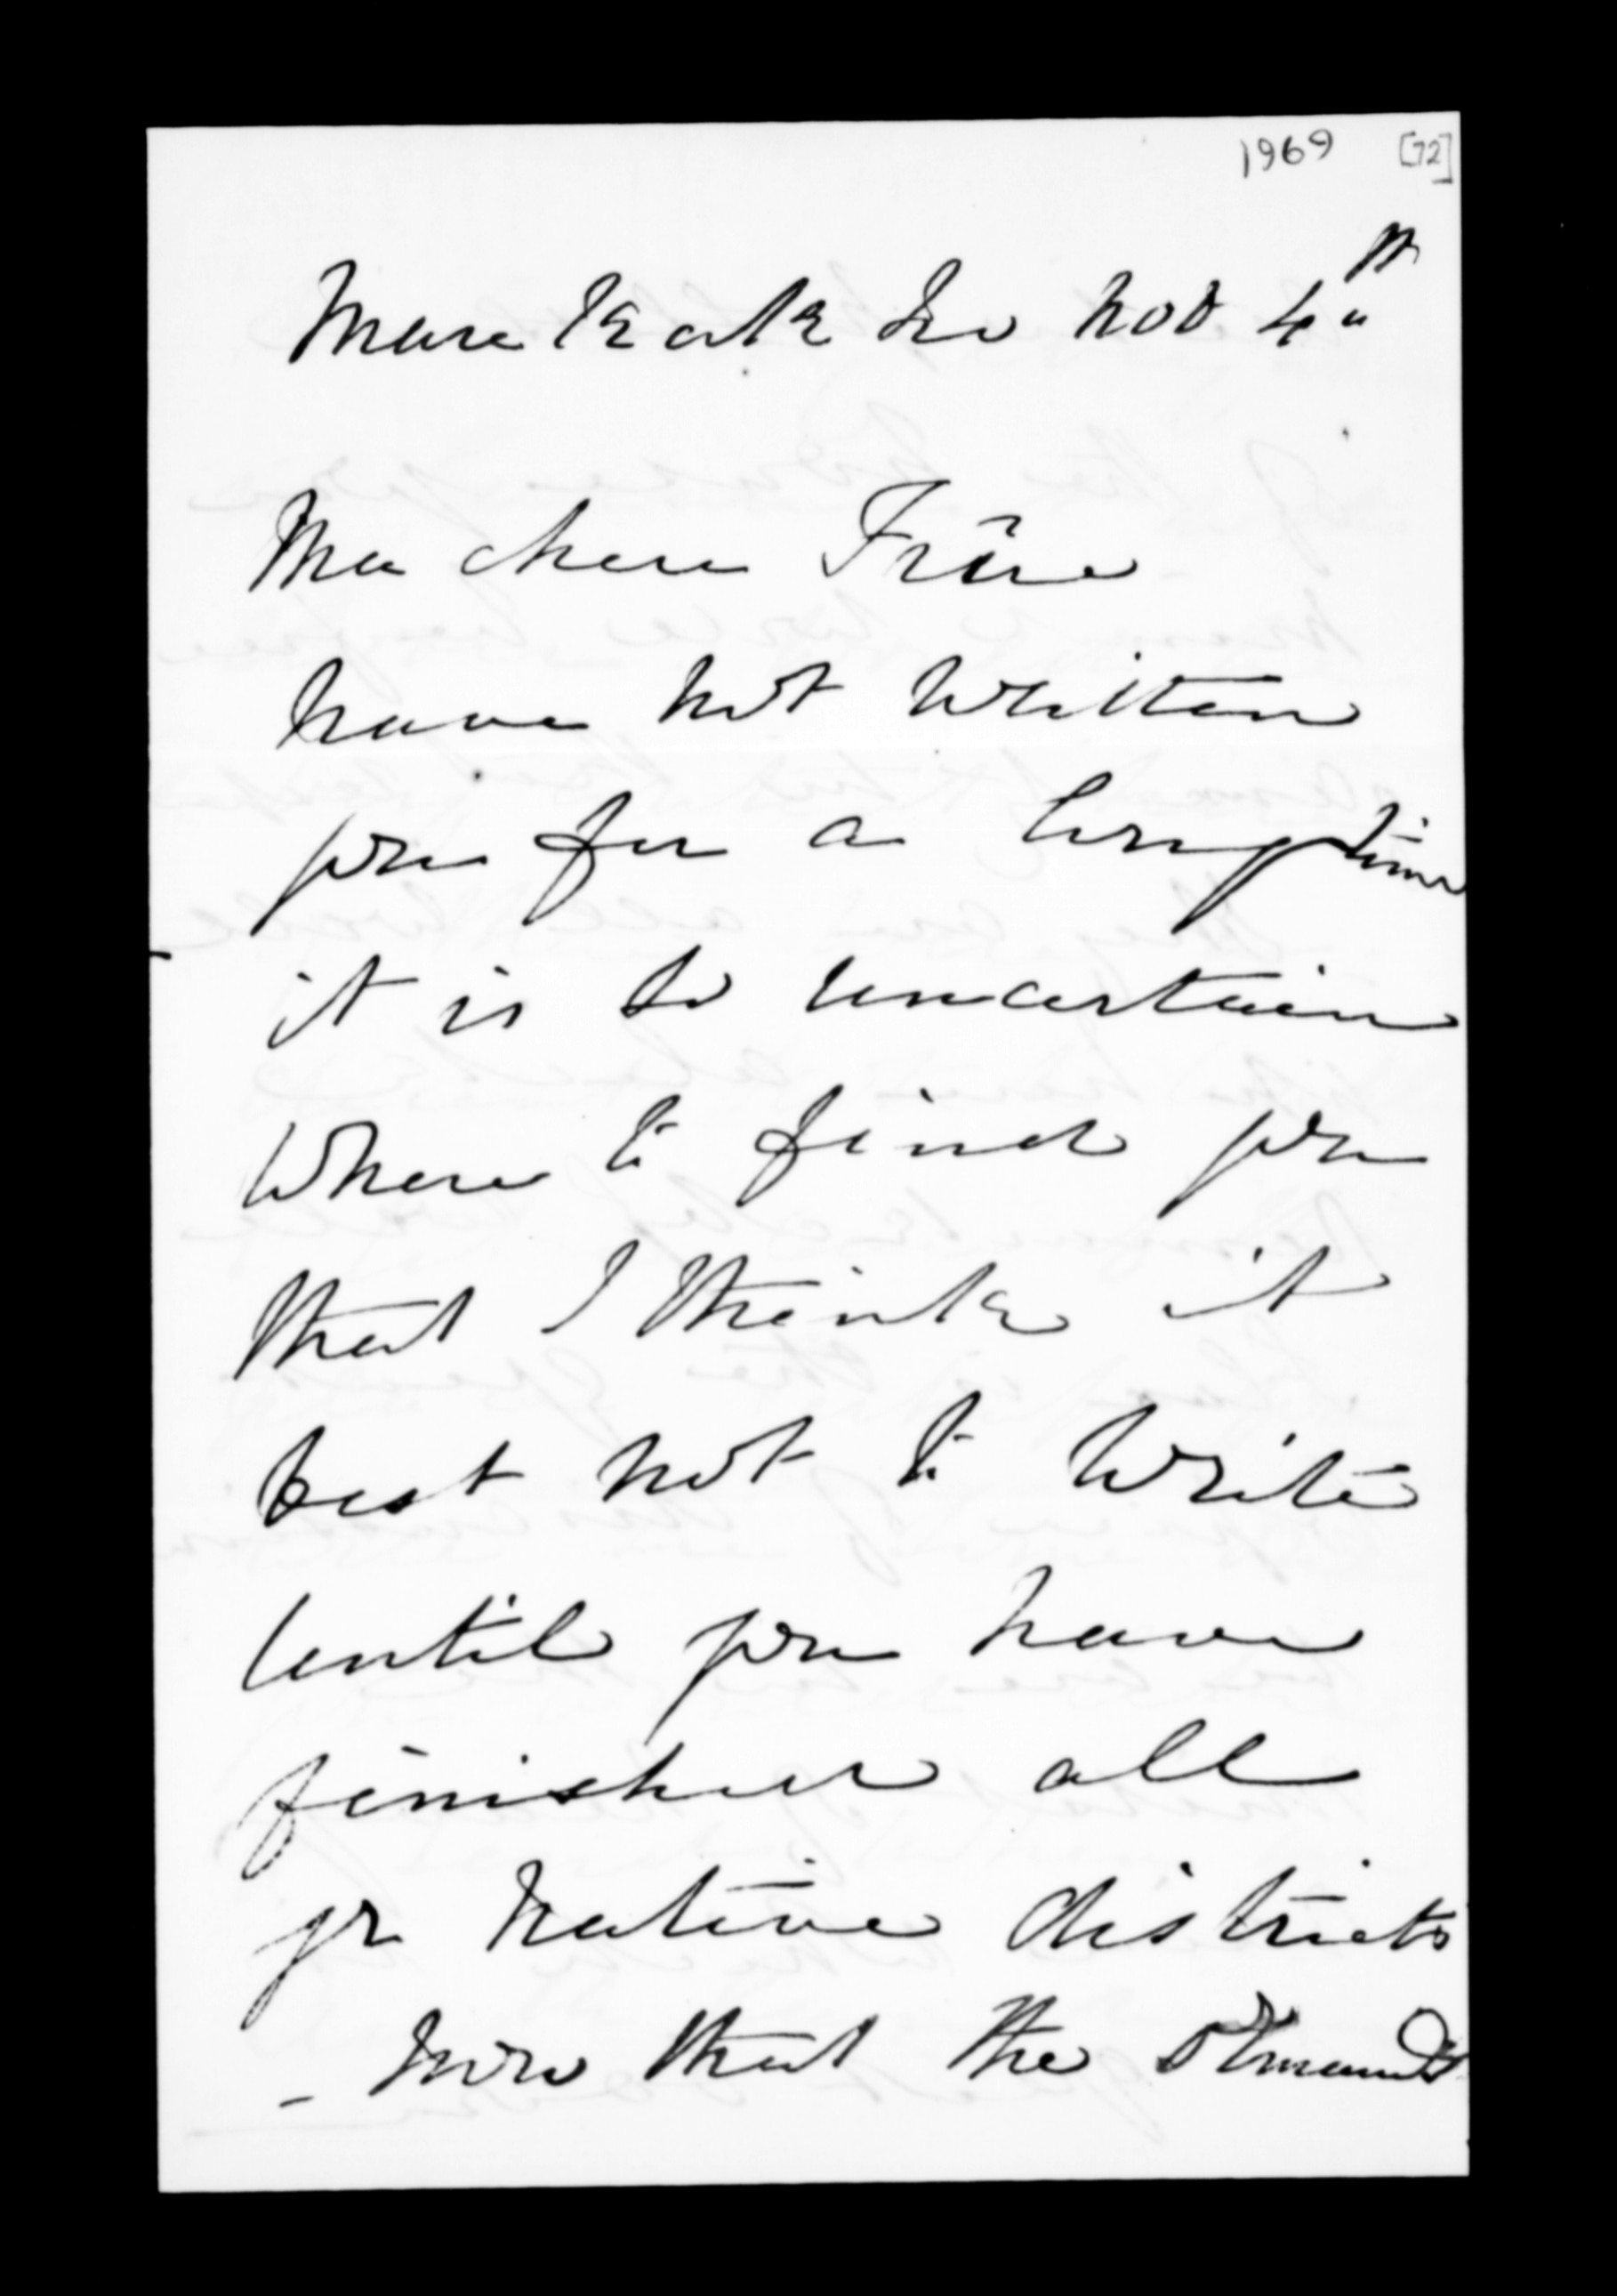 1969 [72]
Maraekakaho Nov 4th
Ma chere Frère
have not written
you for a long time
it is so uncertain
where to find you
that I think it
best not to write
until you have
finished all
yr native districts
- Now that the Ormonds